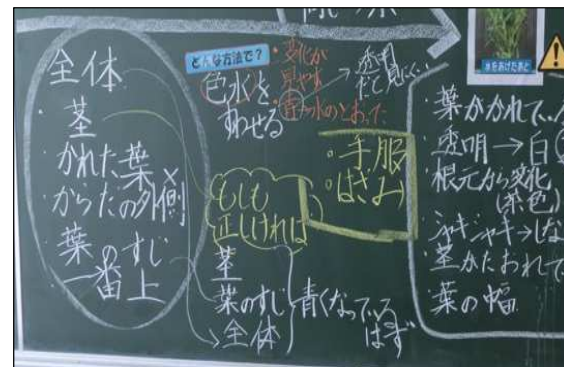 全体
・茎
・かれた葉
・からだの外側
・葉のすじ
・一番上
どんな方法で?
色水を
すわせる
・変化が
見やすい
・青い水のとおった
透明
だと見にくい
・手服
・はさみ
もしも
正しければ
茎
葉のすじ
全体
青くなっている
はず
水をあげたあと
・葉がかれて
・透明→白
・根元から変化
(茶色)
・シャキシャキ→しな
・茎がたおれて
・葉の幅